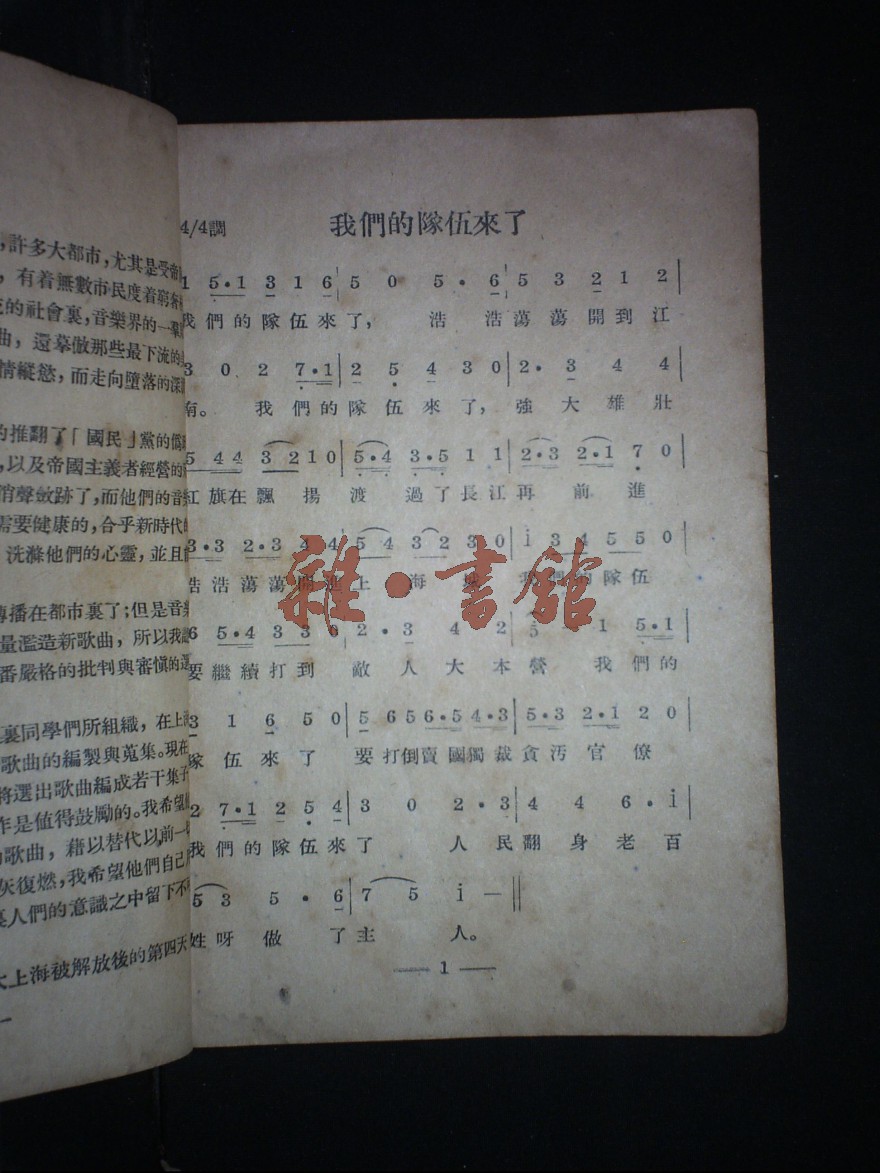 ,許多大都市,尤其是受帝
有着無數市民度着窮奢
的社會裏,音樂界的一羣
曲,還摹倣那些最下流的
情縱慾,而走向墮落的深
的推翻了「國民」黨的
,以及帝國主義者經營的
悄聲斂跡了,而他們的音
需要健康的,合乎新時代
洗滌他們的心靈,並且
傳播在都市裏了;但是音樂
量濫造新歌曲,所以我
番嚴格的批判與審愼的選
裏同學們所組織,在上海
歌曲的編製與蒐集。現在
將選出歌曲編成若干集子
作是值得鼓勵的。我希望
歌曲,藉以替代以前一切
灰復燃,我希望他們自己
人們的意識之中留下不
大上海被解放後的第四天
4/4調
我們的隊伍來了
1 5·1 3 1 6 | 5 0 5 · 6 | 5 3 2 1 2 |
我們的隊伍來了, 浩 浩蕩蕩開到江
3 0 2 7·1 | 2 5 4 3 0 | 2· 3 4 4 |
南。 我們的隊伍來了,強大雄壯
5 4 4 3 2 1 0 | 5·4 3·5 1 1 | 2·3 2·1 7 0 |
紅旗在飄揚渡過了長江再前進
3·3 2·3 4 4 | 5 4 3 2 3 0 | i 3 4 5 5 0 |
浩浩蕩蕩開進上海城 我們的隊伍
6 5·4 3 3 6 | 2 · 3 4 2 | 5 1 5·1 |
要繼續打到敵人大本營 我們的
3 1 6 5 0 | 5 6 5 6·5 4·3 | 5·3 2·1 2 0 |
隊伍來了 要打倒賣國獨裁貪污官僚
2 7·1 2 5 4 | 3 0 2 · 3 | 4 4 6 · i |
我們的隊伍來了 人民翻身老百
5 3 5 · 6 | 7 5 i — ‖
姓呀做 了主 人。
— 1 —
雜·書館